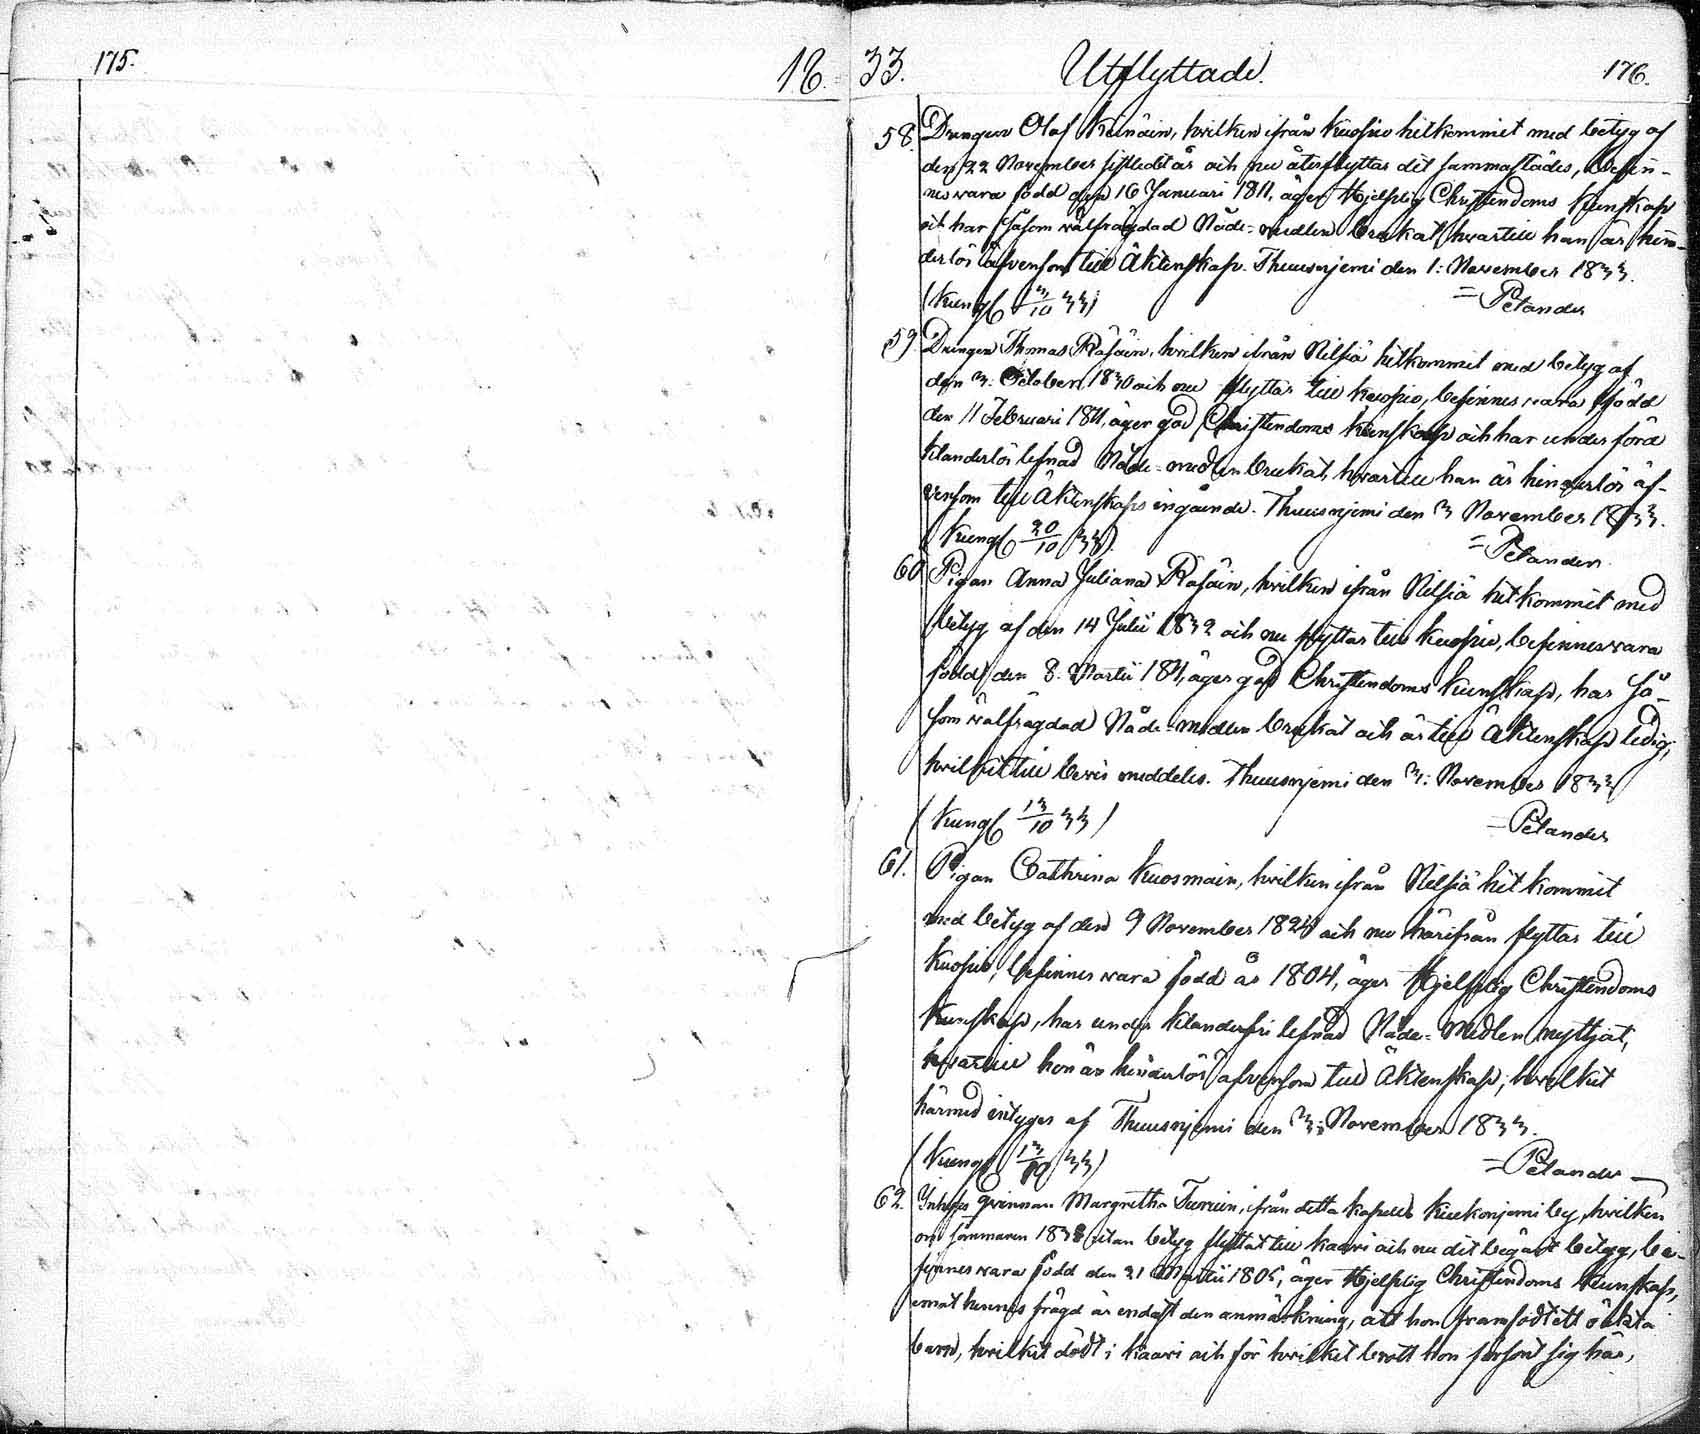 175.
18 33. Utflyttade. 176.
58. Drengen Olof Keinäin, hvilken ifrån Kuopio hitkommit med betyg af
den 22 November sistledit år och nu återflyttar dit sammastädes, befin-
nes vara född den 16 Januari 1811, äger Hjelplig Christendoms Kunskap
och har såsom välfrägdad Nåde-medlen brukat hvartill han är hin-
derlös äfvensom till Äktenskap. Thuusnjemi den 1: November 1833.
(Kungf 13/10 33) = Petander
59. Drengen Thomas Räsäin, hvilken ifrån Nilsiä hitkommit med betyg af
den 3: October 1830 och nu flyttar till Kuopio, befinnes vara född
den 11 Februari 1811, äger god Christendoms kunskap och har under förd
klanderlös lefnad Nåde-medlen brukat, hvartill han är hinderlös äf-
vensom till Äktenskaps ingående. Thuusnjemi den 3 November 1833.
(Kungf 20/10 33). = Petander.
60 Pigan Anna Juliana Räsäin, hvilken ifrån Nilsiä hitkommit med
betyg af den 14 Julii 1832 och nu flyttar till Kuopio, befinnes vara
född den 8. Martii 1811, äger god Christendoms Kunskap, har så-
som välfrägdad Nåde-medlen brukat och är till Äktenskap ledig,
hvilkit till bevis meddeles. Thuusnjemi den 3: November 1833
(Kungf 13/10 33) = Petander
61. Pigan Cathrina Kuosmain, hvilken ifrån Nilsiä hitkommit
med betyg af den 9 November 1823 och nu härifrån flyttar till
Kuopio, befinnes vara född år 1804, äger Hjelplig Christendoms
Kunskap, har under klanderfri lefnad Nåde-Medlen nyttjat,
hvartill hon är hinderlös äfvensom till Äktenskap; hvilkit
härmed intyges af Thuusnjemi den 3: November 1833.
(Kungf 13/10 33) = Petander
62. Inhyses qvinnan Margretha Turuin, ifrån detta kapells Kiukonjemi by, hvilken
om sommaren 1832 utan betyg flyttat till Kaavi och nu dit begärt betyg, be-
finnes vara född den 21 Martii 1805, äger Hjelplig Christendoms kunskap,
emot hennes frägd är endast den anmärkning, att hon framfödt ett oäkta
barn, hvilkit dödt i Kaavi och för hvilket brott hon försont sig här,